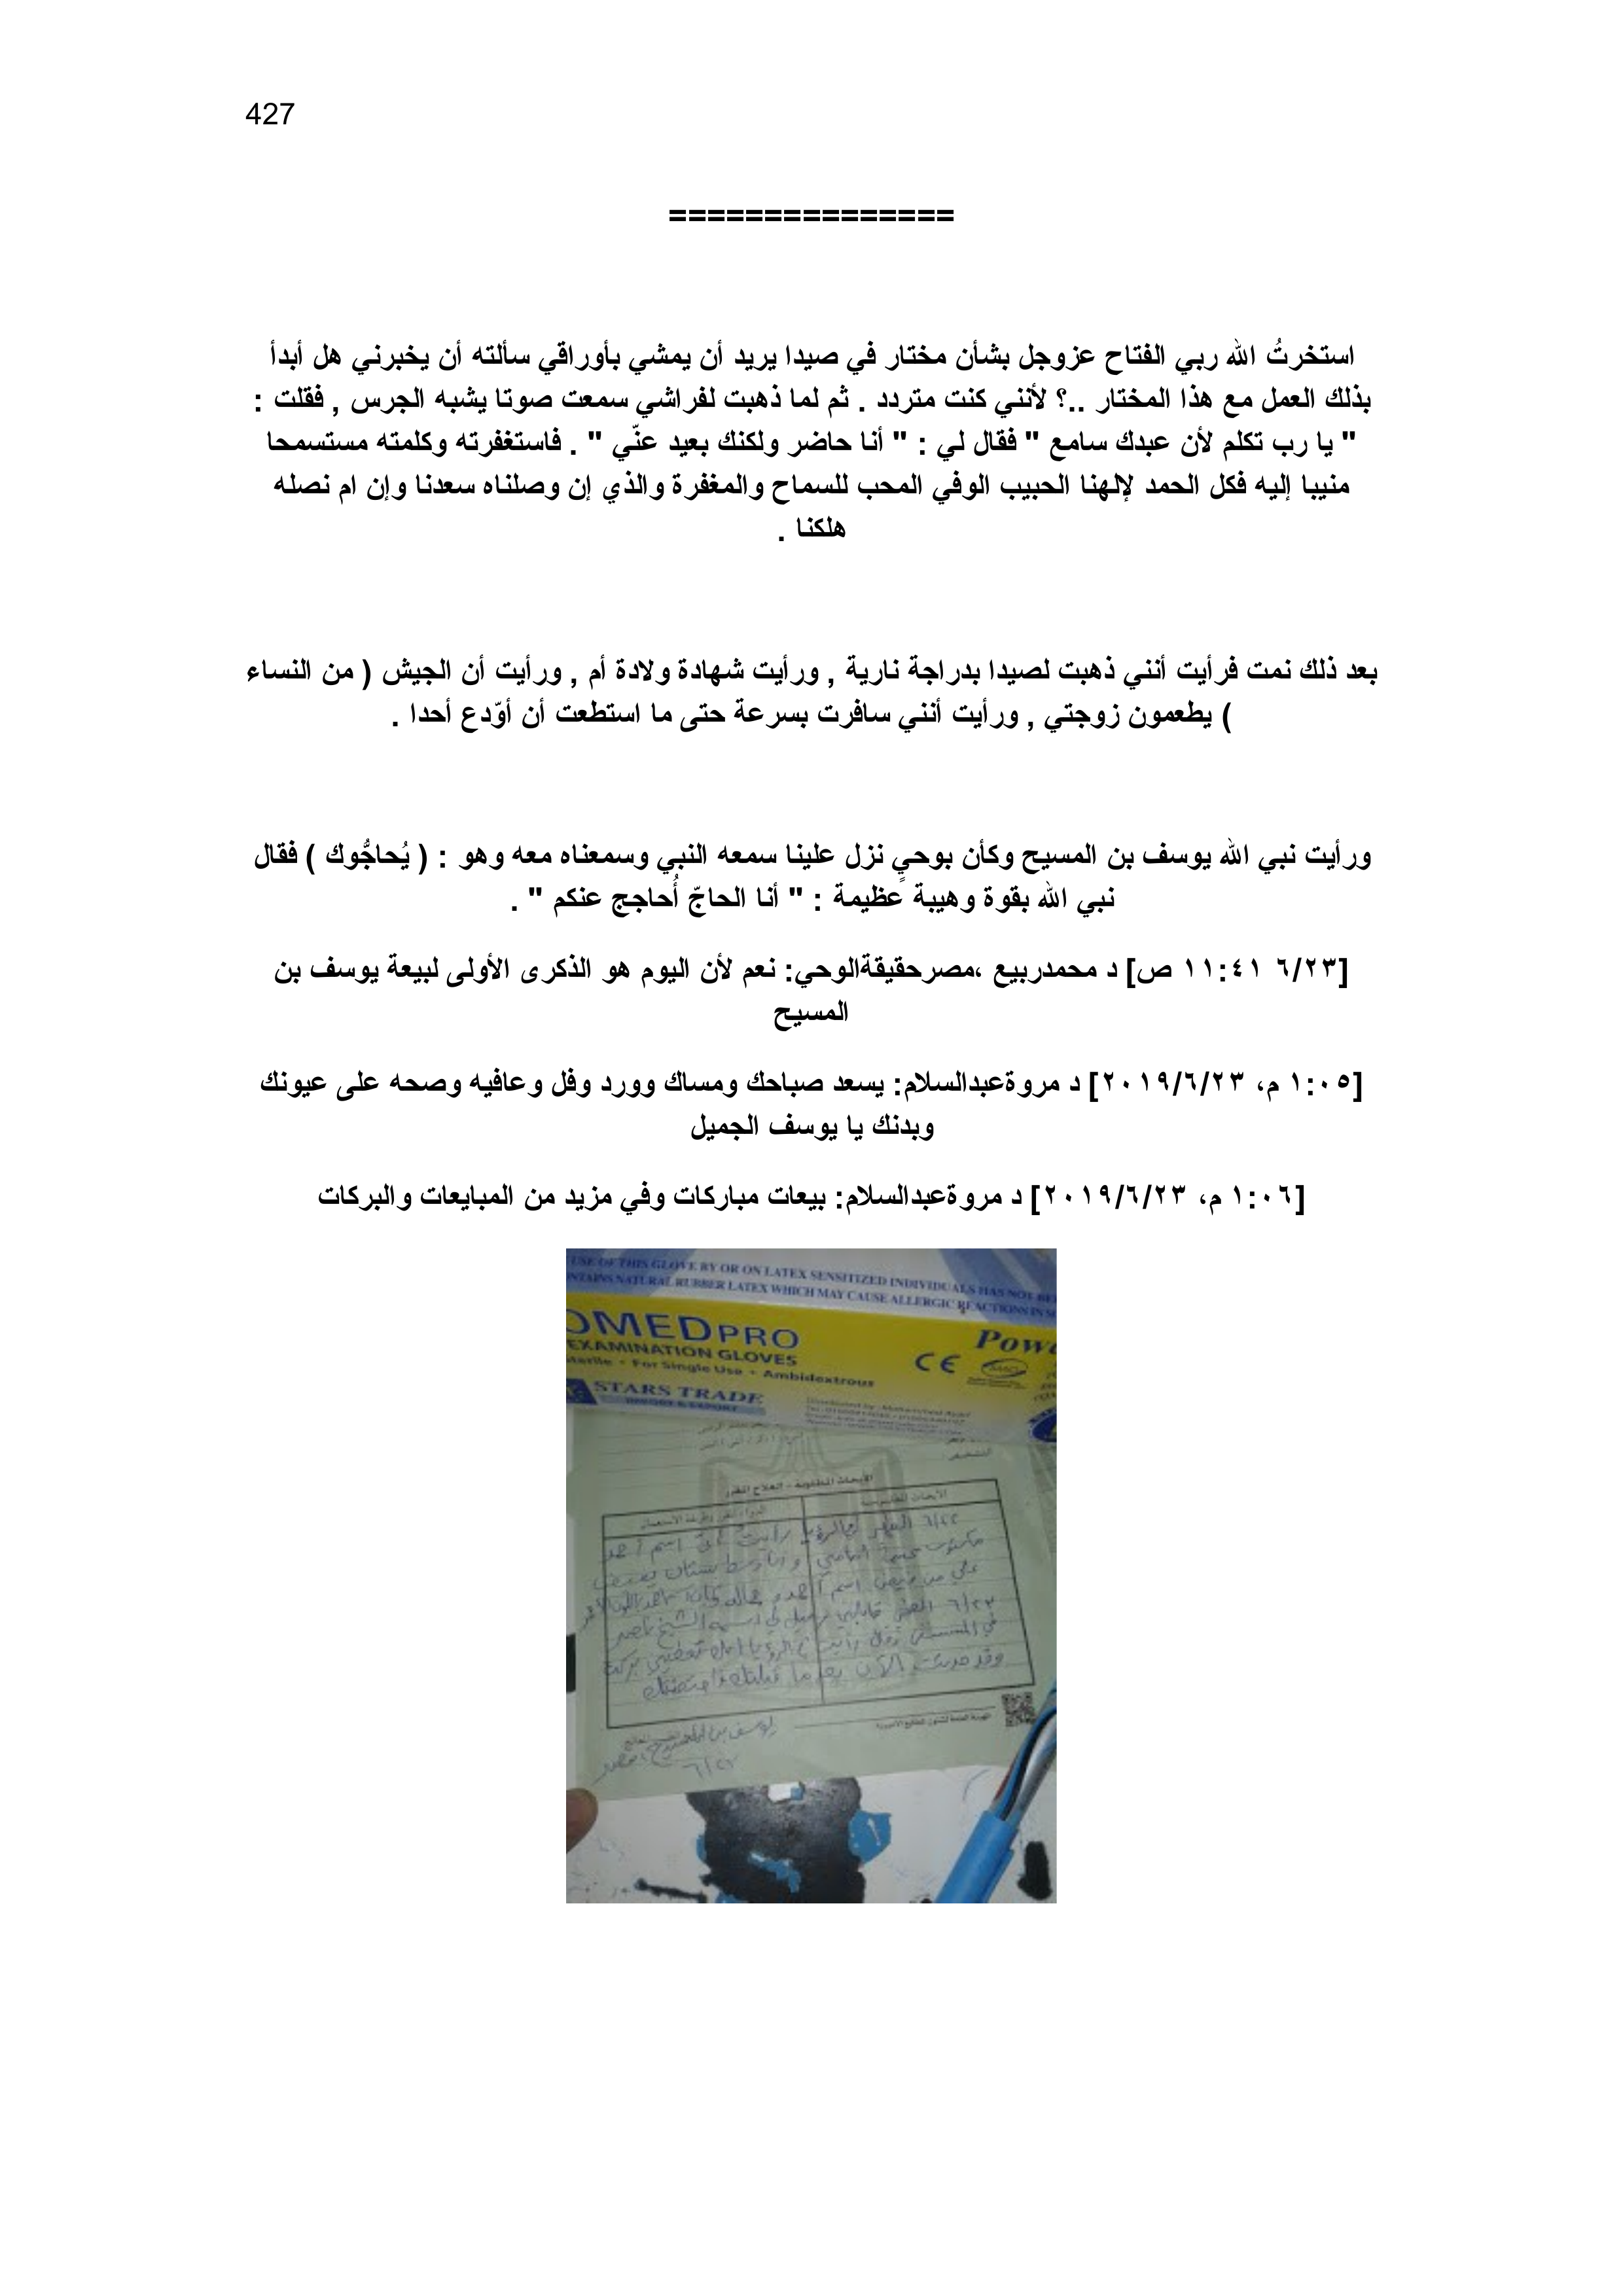 427
===============
استخرتُ الله ربي الفتاح عزوجل بشأن مختار في صيدا يريد أن يمشي بأوراقي سألته أن يخبرني هل أبدأ
بذلك العمل مع هذا المختار ..؟ لأنني كنت متردد . ثم لما ذهبت لفراشي سمعت صوتا يشبه الجرس , فقلت :
" يا رب تكلم لأن عبدك سامع " فقال لي : " أنا حاضر ولكنك بعيد عنّي " . فاستغفرته وكلمته مستسمحا
منيبا إليه فكل الحمد لإلهنا الحبيب الوفي المحب للسماح والمغفرة والذي إن وصلناه سعدنا وإن ام نصله
هلكنا .
بعد ذلك نمت فرأيت أنني ذهبت لصيدا بدراجة نارية , ورأيت شهادة ولادة أم , ورأيت أن الجيش ( من النساء
) يطعمون زوجتي , ورأيت أنني سافرت بسرعة حتى ما استطعت أن أوّدع أحدا .
ورأيت نبي الله يوسف بن المسيح وكأن بوحيٍ نزل علينا سمعه النبي وسمعناه معه وهو : ( يُحاجُّوك ) فقال
نبي الله بقوة وهيبة عظيمة : " أنا الحاجّ أُحاجج عنكم " .
[٦/٢٣ ١١:٤١ ص] د محمدربيع ،مصرحقيقةالوحي: نعم لأن اليوم هو الذكرى الأولى لبيعة يوسف بن
المسيح
[١:٠٥ م، ٢٠١٩/٦/٢٣] د مروةعبدالسلام: يسعد صباحك ومساك وورد وفل وعافيه وصحه على عيونك
وبدنك يا يوسف الجميل
[١:٠٦ م، ٢٠١٩/٦/٢٣] د مروةعبدالسلام: بيعات مباركات وفي مزيد من المبايعات والبركات
USE OF THIS GLOVE BY OR ON LATEX SENSITIZED INDIVIDUALS HAS NOT
NATURAL RUBBER LATEX WHICH MAY CAUSE ALLERGIC REACTIONS IN
OMED PRO
EXAMINATION GLOVES
For Single Use • Ambidextrous
CE
STARS TRADE
IMPORT & EXPORT